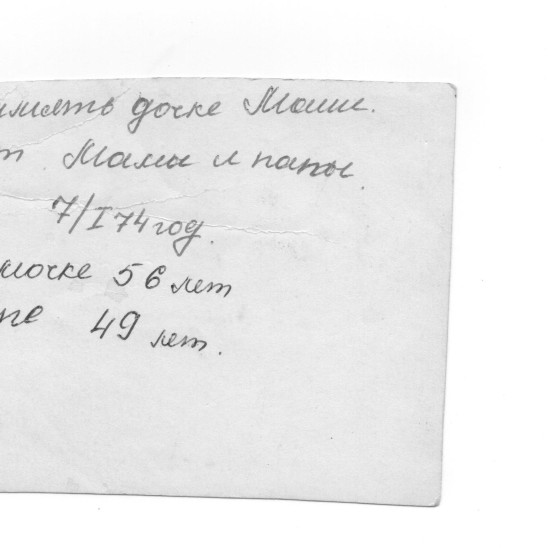 амять дочке Маши.
т Мамы и папы.
7/I 74 год.
мочке 56 лет
пе 49 лет.